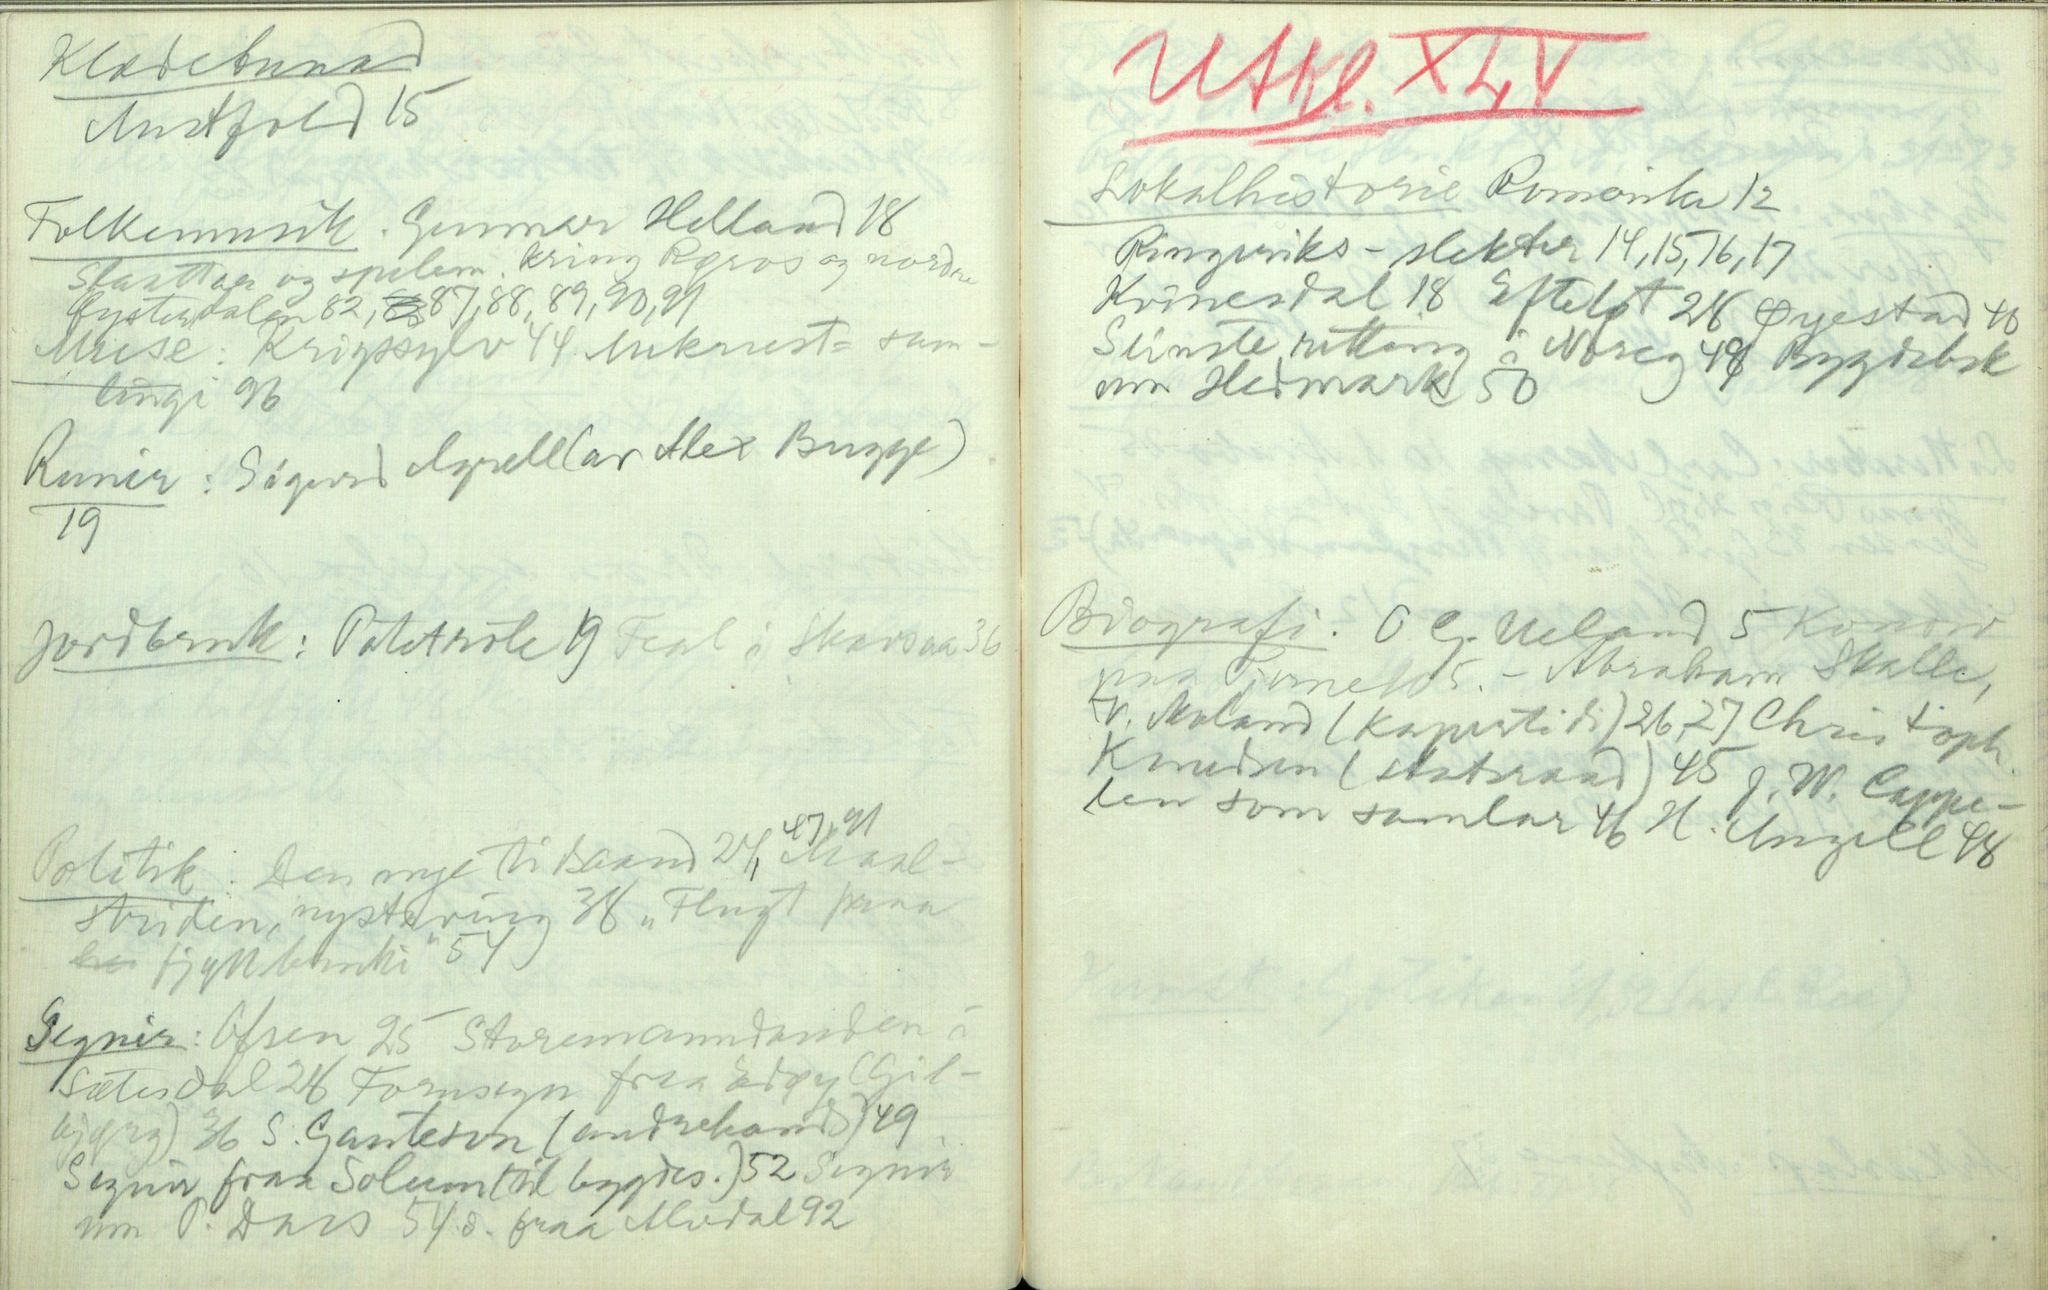 Klædebunad
Austfold 15
Folkemusik. Gunnar Helland 18
Slaattar og spelem. kring Røros og nordre
Øysterdalen 82, 87, 88, 89, 90, 91
Muse: Krigssylv 44 Aukrust= sam-
lingi 96
Runir: Sigurd Agrell (av Alex Bugge)
19
Jordbruk: Potetrole 19 Feal i Skarsaa 36
Politik: Den nye tidsaand 24, 47, 91 Maal-
striden, nystaving 38 „Flugt fraa
fjøllbunki" 54
Segnir: Ofsen 25 Storemanndauden i
Sætesdal 28 Fornsegn fraa Edøy (Gil-
bjørg) 36 S. Gauteson (andrehands) 49
Segnir fraa Solum (til bygds.) 52 Segnir
um P. Dass 54 d. fraa Modal 92
Utkl. XLV
Lokalhistorie Romerike 12
Ringeriks-slekter 14, 15, 16, 17
Kvinesdal 18 Efteløt 28 Øyestad 46
Slinste rettang i Noreg 48 Bygdebok
um Hedmark 50
Biografi. O G. Ueland 5 Konow
paa 5. - Abraham Skalle,
v. Moland (kapertidi) 26, 27 Christoph.
Knudsen (statsraad) 45 J. W. Cappe-
len som samlar 46 H. Ungell 48
Kunst: Gotiken 51, 52